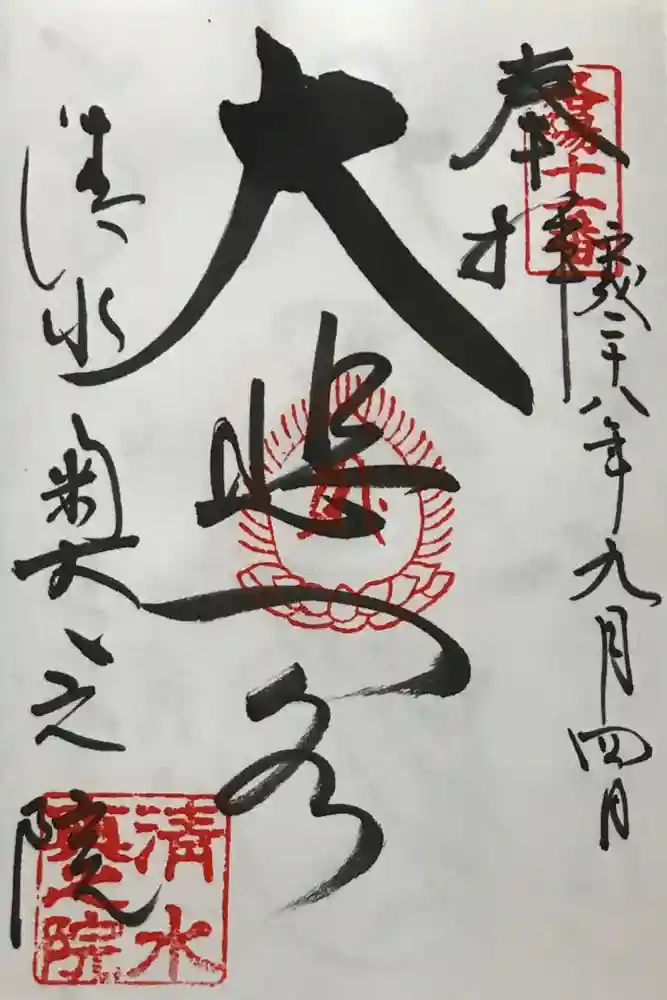 奉拝
洛陽十一番
平成二十八年九月四日
大悲閣
清水奥之院
清水
奥之院